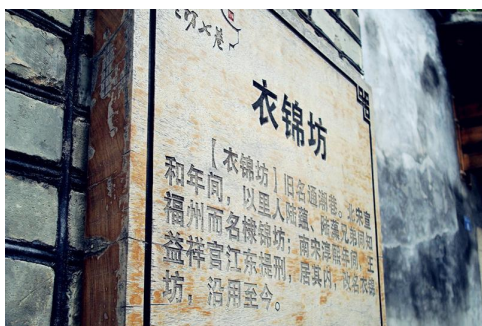 坊七巷
衣锦坊
【衣锦坊】旧名通潮巷。北宋宣
和年间，以里人陆蕴、陆藻兄弟同知
福州而名棣锦坊；南宋淳熙年间，王
益祥官江东提刑，居其内，改名衣锦
坊，沿用至今。